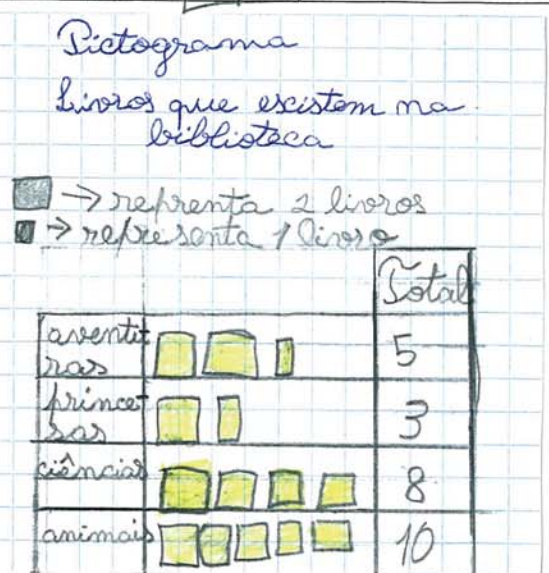 Pictograma
Livros que escistem na
biblioteca
→ reprenta 2 livros
→ representa 1 livro
Total
aventu
ras 5
prince
sas 3
ciências 8
animais 10